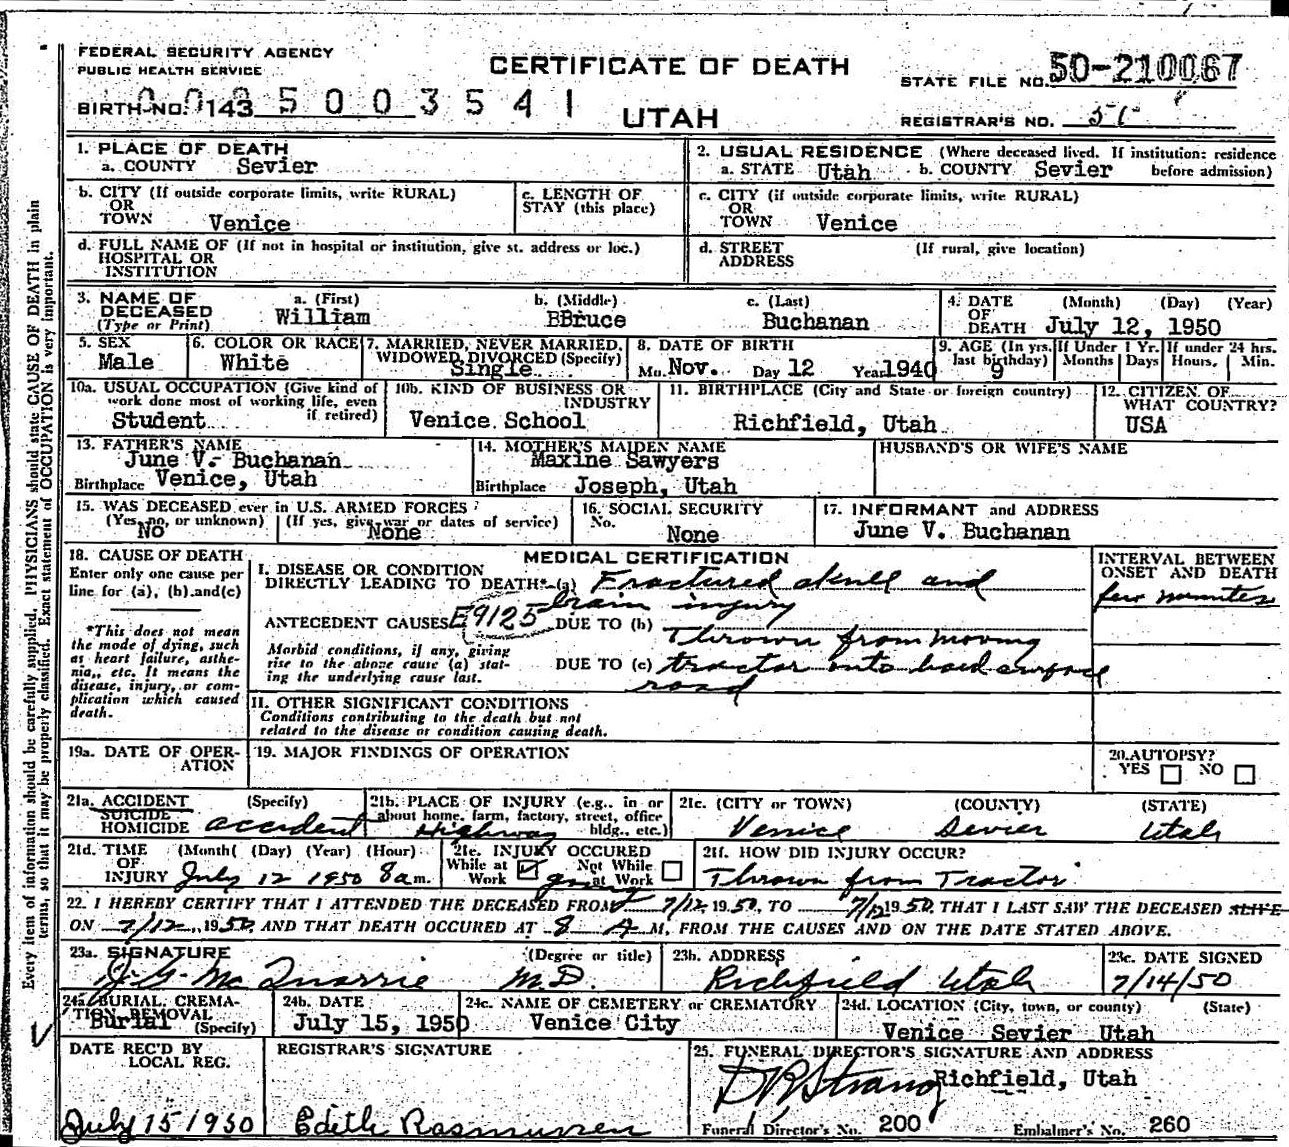 FEDERAL SECURITY AGENCY
PUBLIC HEALTH SERVICE
CERTIFICATE OF DEATH
STATE FILE NO. 50-210067
BIRTH NO. 143 5003541
UTAH
REGISTRAR'S NO. 51
1. PLACE OF DEATH
a. COUNTY Sevier
2. USUAL RESIDENCE (Where deceased lived. If institution: residence before admission)
a. STATE Utah b. COUNTY Sevier
b. CITY (If outside corporate limits, write RURAL) OR TOWN Venice
c. LENGTH OF STAY (this place)
c. CITY (if outside corporate limits, write RURAL) OR TOWN Venice
d. FULL NAME OF (If not in hospital or institution, give st. address or loc.) HOSPITAL OR INSTITUTION
d. STREET ADDRESS (If rural, give location)
3. NAME OF DECEASED (Type or Print)
a. (First) William
b. (Middle) BBruce
c. (Last) Buchanan
4. DATE OF DEATH (Month) (Day) (Year) July 12, 1950
5. SEX Male
6. COLOR OR RACE White
7. MARRIED, NEVER MARRIED, WIDOWED, DIVORCED (Specify) Single
8. DATE OF BIRTH Mo. Nov. Day 12 Year 1940
9. AGE (In yrs. last birthday) 9
If Under 1 Yr. Months Days
If under 24 hrs. Hours Min.
10a. USUAL OCCUPATION (Give kind of work done most of working life, even if retired) Student
10b. KIND OF BUSINESS OR INDUSTRY Venice School
11. BIRTHPLACE (City and State or foreign country) Richfield, Utah
12. CITIZEN OF WHAT COUNTRY? USA
13. FATHER'S NAME June V. Buchanan
Birthplace Venice, Utah
14. MOTHER'S MAIDEN NAME Maxine Sawyers
Birthplace Joseph, Utah
HUSBAND'S OR WIFE'S NAME
15. WAS DECEASED ever in U.S. ARMED FORCES?
(Yes, no, or unknown) No
(If yes, give war or dates of service) None
16. SOCIAL SECURITY No. None
17. INFORMANT and ADDRESS June V. Buchanan
18. CAUSE OF DEATH
Enter only one cause per line for (a), (b) and (c)
*This does not mean the mode of dying, such as heart failure, asthenia, etc. It means the disease, injury, or complication which caused death.
MEDICAL CERTIFICATION
I. DISEASE OR CONDITION DIRECTLY LEADING TO DEATH* (a) Fractured skull and brain injury
ANTECEDENT CAUSES E9125 DUE TO (b) Thrown from moving
Morbid conditions, if any, giving rise to the above cause (a) stating the underlying cause last.
DUE TO (c) tractor onto hard surface road
II. OTHER SIGNIFICANT CONDITIONS
Conditions contributing to the death but not related to the disease or condition causing death.
INTERVAL BETWEEN ONSET AND DEATH
few minutes
19a. DATE OF OPERATION
19. MAJOR FINDINGS OF OPERATION
20. AUTOPSY? YES NO
21a. ACCIDENT SUICIDE HOMICIDE (Specify) accident
21b. PLACE OF INJURY (e.g., in or about home, farm, factory, street, office bldg., etc.) Highway
21c. (CITY or TOWN) (COUNTY) (STATE)
Venice Sevier Utah
21d. TIME OF INJURY (Month) (Day) (Year) (Hour) July 12 1950 8 am.
21e. INJURY OCCURED
While at Work Not While at Work going
21f. HOW DID INJURY OCCUR?
Thrown from Tractor
22. I HEREBY CERTIFY THAT I ATTENDED THE DECEASED FROM 7/12, 1950, TO 7/12 1950, THAT I LAST SAW THE DECEASED ALIVE
ON 7/12, 1950, AND THAT DEATH OCCURED AT 8 A M, FROM THE CAUSES AND ON THE DATE STATED ABOVE.
23a. SIGNATURE (Degree or title) J. G. McQuarrie M.D.
23b. ADDRESS Richfield Utah
23c. DATE SIGNED 7/14/50
24a. BURIAL, CREMATION, REMOVAL (Specify) Burial
24b. DATE July 15, 1950
24c. NAME OF CEMETERY or CREMATORY Venice City
24d. LOCATION (City, town, or county) (State)
Venice Sevier Utah
DATE REC'D BY LOCAL REG.
July 15 1950
REGISTRAR'S SIGNATURE
Edith Rasmussen
25. FUNERAL DIRECTOR'S SIGNATURE AND ADDRESS
Richfield, Utah
Funeral Director's No. 200 Embalmer's No. 260
Every item of information should be carefully supplied. PHYSICIANS should state CAUSE OF DEATH in plain
terms, so that it may be properly classified. Exact statement of OCCUPATION is very important.